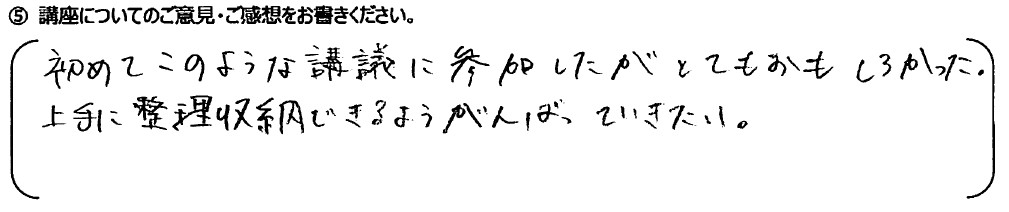 ⑤ 講座についてのご意見・ご感想をお書きください。
初めてこのような講議に参加したがとてもおもしろかった.
上手に整理収納できるようがんばっていきたい。